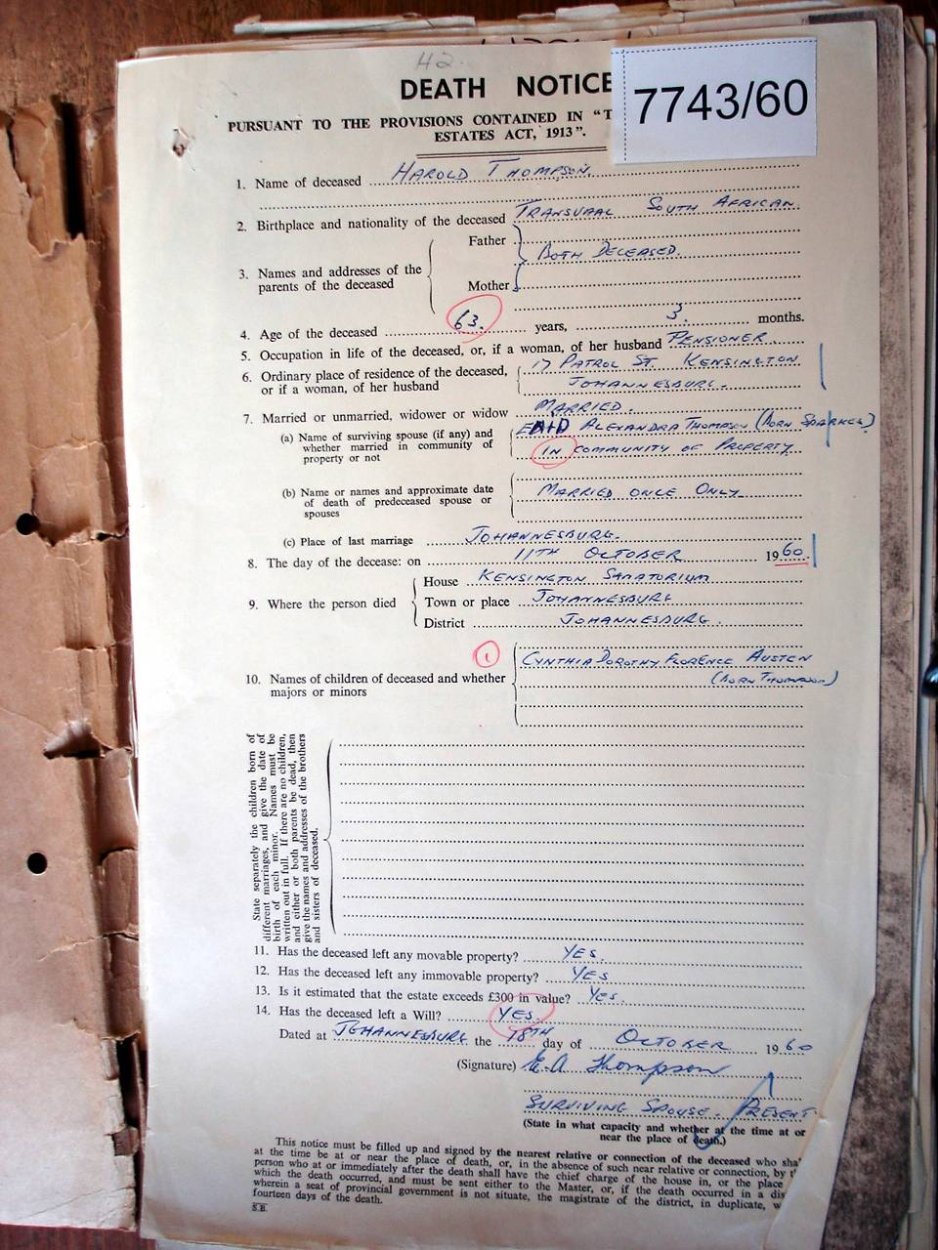 H2.
DEATH NOTICE
7743/60
PURSUANT TO THE PROVISIONS CONTAINED IN "T
ESTATES ACT, 1913".
1. Name of deceased HAROLD THOMPSON.
2. Birthplace and nationality of the deceased TRANSVAAL SOUTH AFRICAN.
3. Names and addresses of the parents of the deceased
Father
BOTH DECEASED.
Mother
4. Age of the deceased 63. years, 3. months.
5. Occupation in life of the deceased, or, if a woman, of her husband PENSIONER.
6. Ordinary place of residence of the deceased, 17 PATROL ST. KENSINGTON
or if a woman, of her husband JOHANNESBURG.
7. Married or unmarried, widower or widow MARRIED.
(a) Name of surviving spouse (if any) and ALEXANDRA THOMPSON (BORN SPARKES)
whether married in community of IN COMMUNITY OF PROPERTY
property or not
(b) Name or names and approximate date MARRIED ONCE ONLY
of death of predeceased spouse or
spouses
(c) Place of last marriage JOHANNESBURG.
8. The day of the decease: on 11TH OCTOBER 1960.
9. Where the person died
House KENSINGTON SANATORIUM
Town or place JOHANNESBURG
District JOHANNESBURG.
1
CYNTHIA DOROTHY FLORENCE AUSTEN
10. Names of children of deceased and whether (BORN THOMPSON)
majors or minors
State separately the children born of
different marriages, and give the date of
birth of each minor. Names must be
written out in full. If there are no children,
and either or both parents be dead, then
give the names and addresses of the brothers
and sisters of deceased.
11. Has the deceased left any movable property? YES.
12. Has the deceased left any immovable property? YES
13. Is it estimated that the estate exceeds £300 in value? YES.
14. Has the deceased left a Will? YES.
Dated at JOHANNESBURG the 18TH day of OCTOBER 1960
(Signature) E.A. Thompson
SURVIVING SPOUSE. PRESENT
(State in what capacity and whether at the time at or
near the place of death.)
This notice must be filled up and signed by the nearest relative or connection of the deceased who sha
at the time be at or near the place of death, or, in the absence of such near relative or connection, by t
person who at or immediately after the death shall have the chief charge of the house in, or the place
which the death occurred, and must be sent either to the Master, or, if the death occurred in a dis
wherein a seat of provincial government is not situate, the magistrate of the district, in duplicate, w
fourteen days of the death.
S.B.